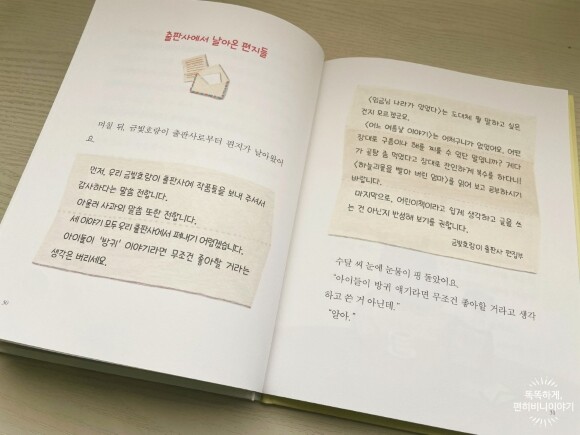 출판사에서 날아온 편지들
며칠 뒤, 금빛호랑이 출판사로부터 편지가 날아왔어
요.
먼저, 우리 금빛호랑이 출판사에 작품들을 보내 주셔서
감사하다는 말씀 전합니다.
아울러 사과의 말씀 또한 전합니다.
세 이야기 모두 우리 출판사에서 펴내기 어렵겠습니다.
아이들이 '방귀' 이야기라면 무조건 좋아할 거라는
생각은 버리세요.
30
<임금님 나라가 있었다>는 도대체 뭘 말하고 싶은
건지 모르겠군요.
<어느 여름날 이야기>는 어처구니가 없었어요. 어떤
장대로 구름이나 해를 찌를 수 있단 말입니까? 게다
가 곶감 좀 먹었다고 상대로 잔인하게 복수를 하다니!
<하늘괴물을 빨아 버린 엄마>를 읽어 보고 공부하시기
바랍니다.
마지막으로, 어린이책이라고 쉽게 생각하고 글을 쓰
는 건 아닌지 반성해 보기를 권합니다.
금빛호랑이 출판사 편집부
수달 씨 눈에 눈물이 핑 돌았어요.
"아이들이 방귀 얘기라면 무조건 좋아할 거라고 생각
하고 쓴 거 아닌데."
"알아."
똑똑하게,
편히비니이야기